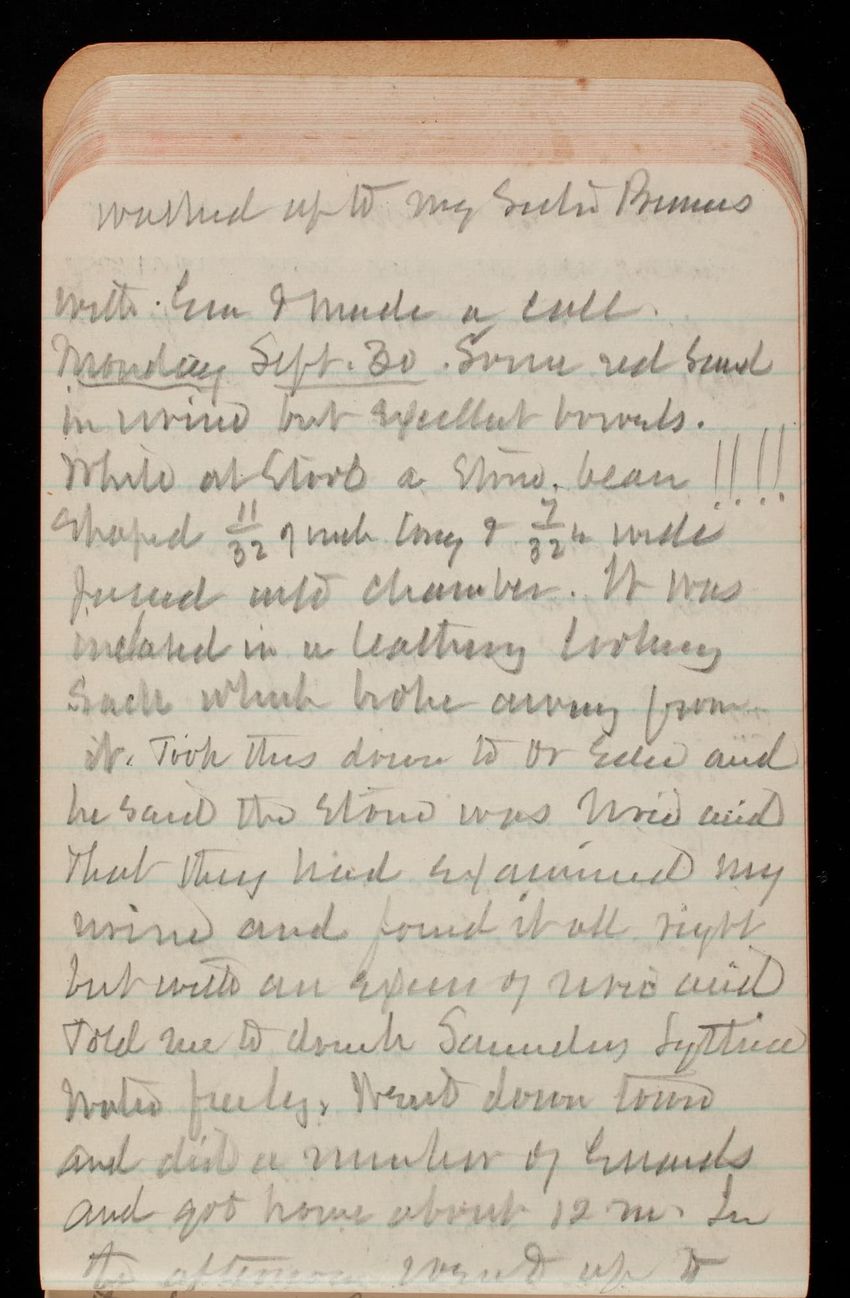 walked up to my
with Eva & made a call.
Monday Sept. 30. Some red sand
in urine but excellent bowels.
While at Stool a stone, bean !!!!
shaped 11/32 of inch long & 7/32 " wide
passed into chamber. It was
incased in a leathery looking
sack which broke away from
it. Took this down to Dr Edie and
he said the stone was Uric acid
that they had examined my
urine and found it all right
but with an excess of uric acid
Told me to drink Saunders Lythia
Water freely. Went down town
and did a number of Errands
and got home about 12 m. In
the afternoon went up to